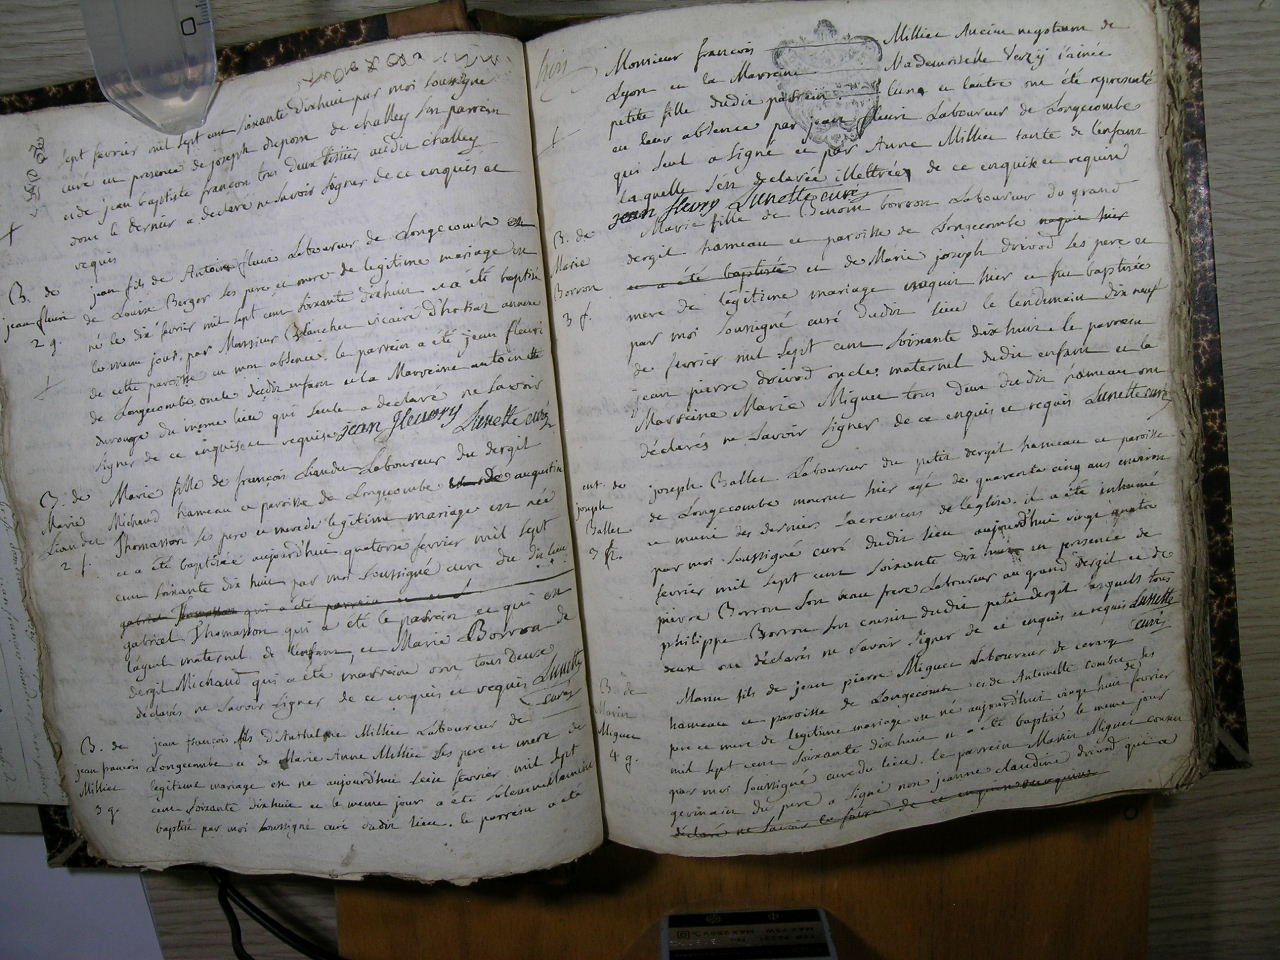 sept fevrier mil sept cent soixante dixhuit par moi soussigné
curé en presence de joseph de challey son parrein
et de jean baptiste françon tous deux audit challey
dont le dernier a declaré ne savoir signer de ce enquis et
requis
B. de
jean fleuri
2 g.
jean fils de Antoine fleuri Laboureur de Longecombe et
de Louise Berger ses pere et mere de legitime mariage est
né le dix fevrier mil sept cent soixante dixhuit et a été baptisé
le meme jour, par Monsieur Blanchet vicaire d'hotiaz annexe
de cette paroisse en mon absence. le parrein a été jean fleuri
de Longecombe oncle dudit enfant et la Marreine antoinette
du meme lieu qui seule a declaré ne savoir
signer de ce enquise et requise jean fleurry Lunette curé
B. de
Marie
Liandet
2 f.
Marie fille de françois Liandet Laboureur du dergit
Michaud hameau et paroisse de Longecombe et de augustine
Thomasson ses pere et mere de legitime mariage est née
et a été baptisée aujourd'hui quatorse fevrier mil sept
cent soixante dix huit par moi soussigné curé du dit lieu
gabriel Thomasson qui a été parrein et
gabriel Thomasson qui a été le parrein et qui est
l'ayeul maternel de l'enfant, et Marie Borron de
dergit Michaud qui a été marreine ont tous deux
déclarés ne savoir signer de ce enquis et requis Lunette
curé
B. de
jean françois
Milliet
3 g.
jean françois fils d'Anthelme Milliet Laboureur de
Longecombe et de Marie Anne Milliet ses pere et mere de
legitime mariage est né aujourd'hui seize fevrier mil sept
cent soixante dixhuit et le meme jour a été solemnellement
baptisé par moi soussigné curé dudit lieu. le parrein a été
Monsieur françois Milliet Ancien negotiant de
Lyon et la Marreine Mademoiselle l'ainée
petite fille dudit parrein l'un et l'autre ont été representé
en leur absence par jean fleuri Laboureur de Longecombe
qui seul a signé et par Anne Milliet tante de l'enfant
laquelle s'est declarée illettrée de ce enquise et requise
jean fleurry Lunette curé
B. de
Marie
Borron
3 f.
Marie fille de Benoit borron Laboureur du grand
dergit hameau et paroisse de Longecombe naquit hier
et a été baptisée et de Marie joseph drivod ses pere et
mere de legitime mariage naquit hier et fut baptisée
par moi soussigné curé dudit lieu le lendemain dix neuf
de fevrier mil sept cent soixante dix huit. le parrein
jean pierre drivod oncle maternel dudit enfant et la
Marreine Marie Miguet tous deux dudit hameau ont
déclarés ne savoir signer de ce enquis et requis Lunette curé
ent. de
joseph
Ballet
joseph Ballet Laboureur du petit dergit hameau et paroisse
de Longecombe mourut hier agé de quarente cinq ans environ
et muni des derniers sacremens de l'eglise. il a été inhumé
par moi soussigné curé dudit lieu aujourd'hui vingt quatre
fevrier mil sept cent soixante dix huit en presence de
pierre Borron son beau frere Laboureur au grand dergit et de
philippe Borron son cousin dudit petit dergit lesquels tous
deux ont déclarés ne savoir signer de ce enquis et requis Lunette
curé
B. de
Marin
Miguet
4 g.
Marin fils de jean pierre Miguet Laboureur de
hameau et paroisse de Longecombe et de Antoinette combet ses
pere et mere de legitime mariage est né aujourd'hui vingt huit fevrier
mil sept cent soixante dixhuit et a été baptisé le meme jour
par moi soussigné curé du lieu. le parrein Marin Miguet cousin
germain du pere a signé non jeanne claudine drivod qui a
déclaré ne savoir le faire de ce enquise et requise